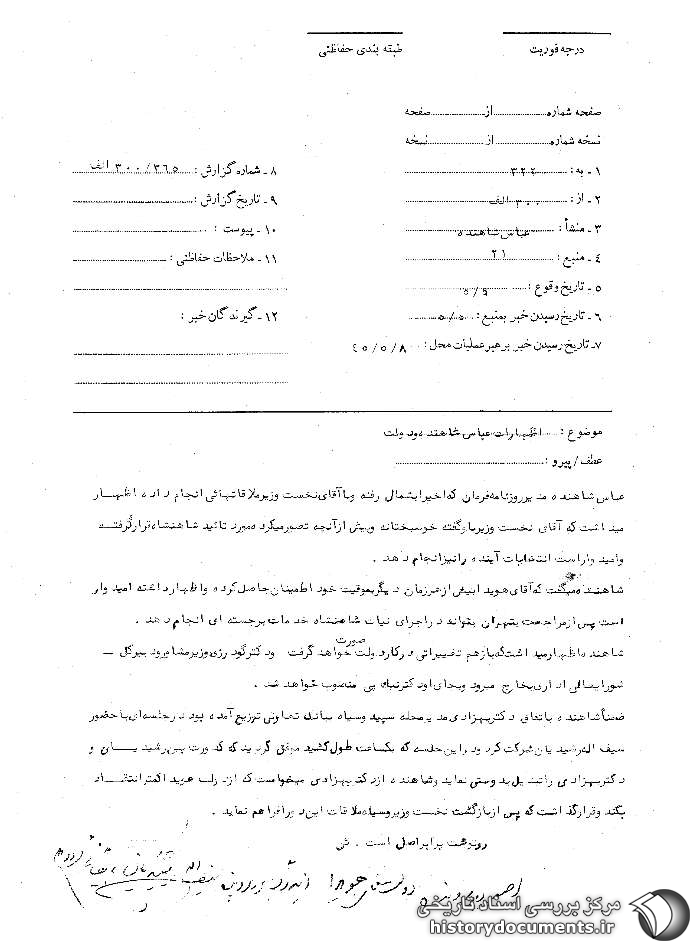 درجه فوریت
طبقه بندی حفاظتی
صفحه شماره از صفحه
نسخه شماره از نسخه
۱ـ به : ۳۲۲
۲ـ از : ۳۰۰ الف
۳ـ منشأ : عباس شاهنده
۴ـ منبع : ۲۱
۵ـ تاریخ وقوع :
۶ـ تاریخ رسیدن خبر بمنبع :
۷ـ تاریخ رسیدن خبر برهبر عملیات محل : ۴۵/۵/۸
۸ـ شماره گزارش : ۳۰۰/۳۶۵ الف
۹ـ تاریخ گزارش :
۱۰ـ پیوست :
۱۱ـ ملاحظات حفاظتی :
۱۲ـ گیرندگان خبر :
موضوع : اظهارات عباس شاهنده
عطف/پیرو :
عباس شاهنده مدیر روزنامه فرمان که اخیرا بشمال رفته و با آقای نخست وزیر ملاقاتهائی انجام داده اظهار
میداشت که آقای نخست وزیر باو گفته خوشبختانه و بیش از آنچه تصور میکرده مورد تائید شاهنشاه قرار گرفته
و امیدوار است انتخابات آینده را نیز انجام دهد .
شاهنده میگفت که آقای هویدا بیش از هر زمان دیگر بموقیت خود اطمینان حاصل کرده و اظهار داشته امیدوار
است پس از مراجعت بتهران بتواند در اجرای نیات شاهنشاه خدمات برجسته ای انجام دهد .
شاهنده اظهار میداشت که باز هم تغییراتی در کار دولت صورت خواهد گرفت و دکتر گودرزی وزیر مشاور و دبیر کل ـ
شورایعالی اداری بخارج میرود و بجای او دکتر نیک پی منصوب خواهد شد .
ضمناً شاهنده باتفاق دکتر بهزادی مدیر مجله سپید و سیاه بانک تعاونی توزیع آمده بود در جلسه ای با حضور
سیف اله رشیدیان شرکت کرد و در این جلسه که یکساعت طول کشید موفق گردید که کدورت بین رشیدیان و
دکتر بهزادی را تبدیل بدوستی نماید و شاهنده از دکتر بهزادی میخواست که از دولت هویدا کمتر انتقاد
بکند و قرار گذاشت که پس از بازگشت نخست وزیر وسیله ملاقات این دو را فراهم نماید .
رونوشت برابر اصل است . ش
مرکز بررسی اسناد تاریخی
historydocuments.ir